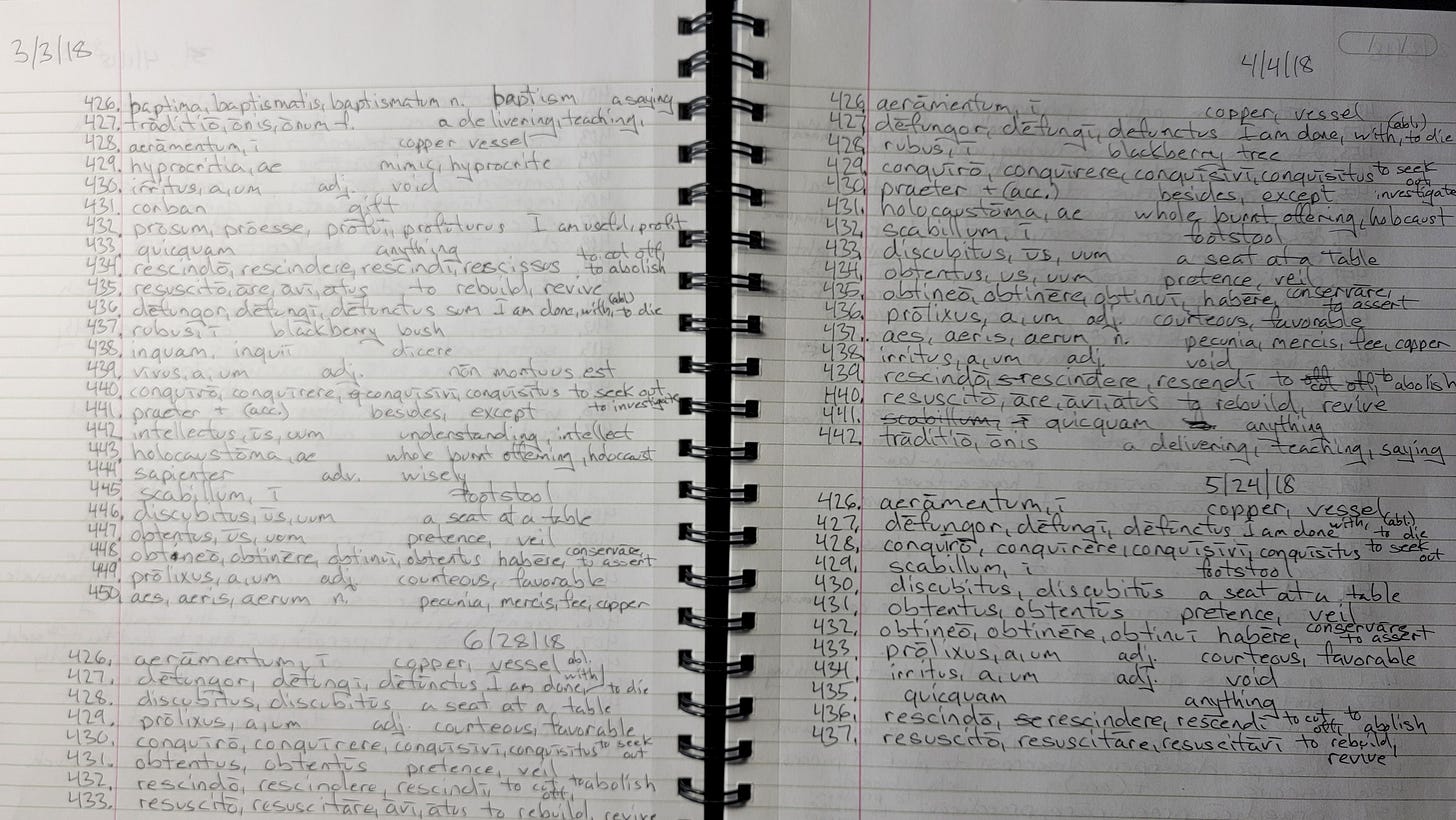 3/3/18
426. baptima, baptismatis, baptismatum n. baptism a saying
427. trāditiō, ōnis, ōnum f. a delivering, teaching,
428. aerāmentum, ī copper vessel
429. hyprocritia, ae mimic, hyprocrite
430. irritus, a, um adj. void
431. conban gift
432. prōsum, prōesse, prōfuī, profuturus I am useful, profit
433. quicquam anything
434. rescindō, rescindere, rescindī, rescissus to cut off, to abolish
435. resuscitō, āre, āvī, ātus to rebuild, revive
436. dēfungor, dēfungī, dēfunctus sum I am done, with, (abl) to die
437. rubus, ī blackberry bush
438. inquam, inquiī dicere
439. vīvus, a, um adj. nōn mortuus est
440. conquīrō, conquīrere, conquīsīvī, conquīsitus to seek out, to investigate
441. praeter + (acc.) besides, except
442. intellectus, ūs, uum understanding, intellect
443. holocaustōma, ae whole burnt offering, holocaust
444. sapienter adv. wisely
445. scabillum, ī footstool
446. discubitus, ūs, uum a seat at a table
447. obtentus, ūs, uum pretence, veil
448. obtineō, obtinēre, obtinuī, obtentus habēre, conservare, to assert
449. prōlixus, a, um adj. courteous, favorable
450. aes, aeris, aerum n. pecunia, mercis, fee, copper
6/28/18
426. aerāmentum, ī copper, vessel
427. dēfungor, dēfungī, dēfunctus I am done, with abl. to die
428. discubitus, discubitūs a seat at a table
429. prōlixus, a, um adj. courteous, favorable
430. conquīrō, conquīrere, conquīsīvī, conquīsitus to seek out
431. obtentus, obtentūs pretence, veil
432. rescindō, rescindere, rescindī to cut off, to abolish
433. resuscitō, resuscitāre, āvī, ātus to rebuild, revive
4/4/18
426. aerāmentum, ī copper, vessel
427. dēfungor, dēfungī, dēfunctus I am done, with, (abl.) to die
428. rubus, ī blackberry tree
429. conquīrō, conquīrere, conquīsīvī, conquīsitus to seek out
430. praeter + (acc.) besides, except investigate
431. holocaustōma, ae whole burnt offering, holocaust
432. scabillum, ī footstool
433. discubitus, ūs, uum a seat at a table
424. obtentus, us, uum pretence, veil
435. obtineō, obtinēre, obtinuī, habēre, conservāre, to assert
436. prōlixus, a, um adj. courteous, favorable
437. aes, aeris, aerum n. pecunia, mercis, fee, copper
438. irritus, a, um adj. void
439. rescindō, rescindere, rescendī to cut off, to abolish
440. resuscitō, āre, āvī, ātus to rebuild, revive
441. scabillum, ī quicquam anything
442. trāditiō, ōnis a delivering, teaching, saying
5/24/18
426. aerāmentum, ī copper, vessel
427. dēfungor, dēfungī, dēfunctus I am done with, (abl.) to die
428. conquīrō, conquīrere, conquīsīvī, conquīsitus to seek out
429. scabillum, ī footstool
430. discubitus, discubitūs a seat at a table
431. obtentus, obtentūs pretence, veil
432. obtineō, obtinēre, obtinuī habēre, conservare to assert
433. prōlixus, a, um adj. courteous, favorable
434. irritus, a, um adj. void
435. quicquam anything
436. rescindō, rescindere, rescendī to cut off, to abolish
437. resuscitō, resuscitāre, resuscitāvī to rebuild, revive